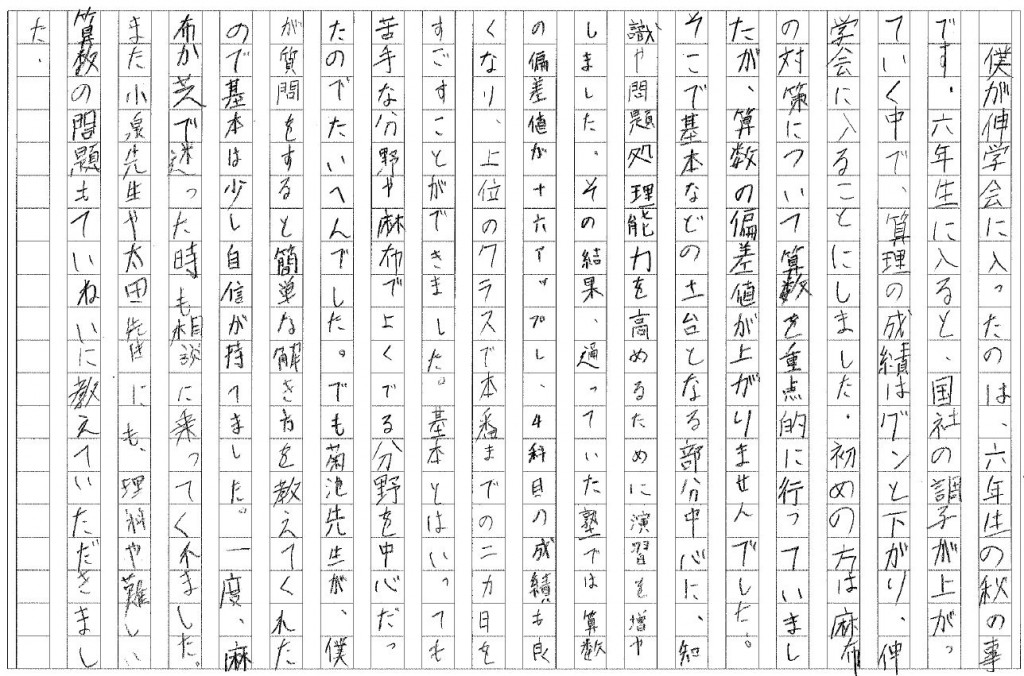 僕が伸学会に入ったのは、六年生の秋の事
です。六年生に入ると、国社の調子が上がっ
ていく中で、算理の成績はグンと下がり、伸
学会に入ることにしました。初めの方は麻布
の対策について算数を重点的に行っていまし
たが、算数の偏差値が上がりませんでした。
そこで基本などの土台となる部分中心に、知
識や問題処理能力を高めるために演習を増や
しました。その結果、通っていた塾では算数
の偏差値が十六アップし、4科目の成績も良
くなり、上位のクラスで本番までの二カ月を
すごすことができました。基本とはいっても
苦手な分野や麻布でよくでる分野を中心だっ
たのでたいへんでした。でも菊池先生が、僕
が質問をすると簡単な解き方を教えてくれた
ので基本は少し自信が持てました。一度、麻
布か芝で迷った時も相談に乗ってくれました。
また小泉先生や太田先生にも、理科や難しい
算数の問題もていねいに教えていただきまし
た。